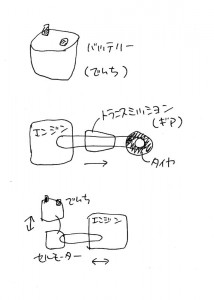 バッテリー
(でんち)
トランスミッション
(ギア)
エンジン
タイヤ
でんち
エンジン
セルモーター